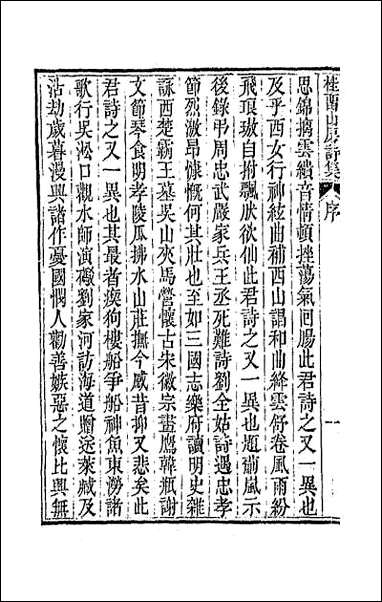 桂𨵿山房詩集 序 一
思錦摛雲續音情頓挫蕩氣回腸此君詩之又一異也
及乎西女行神絃曲補西山謌和曲絳雲舒卷風雨紛
飛琅璈自拊飄肰欲仙此君詩之又一異也趙翦風示
後錄弔周忠武嚴家兵王丞死難詩劉全姑詩遇忠孝
節烈激昂慷慨何其壯也至如三國志樂府讀明史雜
詠西楚霸王墓吳山夾馬營懷古朱徽宗畫鷹韓瓶謝
文節琴食明孝陵瓜拂水山莊撫今感昔抑又悲矣此
君詩之又一異也其最者瘈狗樓船爭船神魚東澇諸
歌行吳淞口觀水師演礮劉家河訪海道贈送萊臧及
沽劫歲暮漫興諸作憂國憫人勸善嫉惡之懷比興無